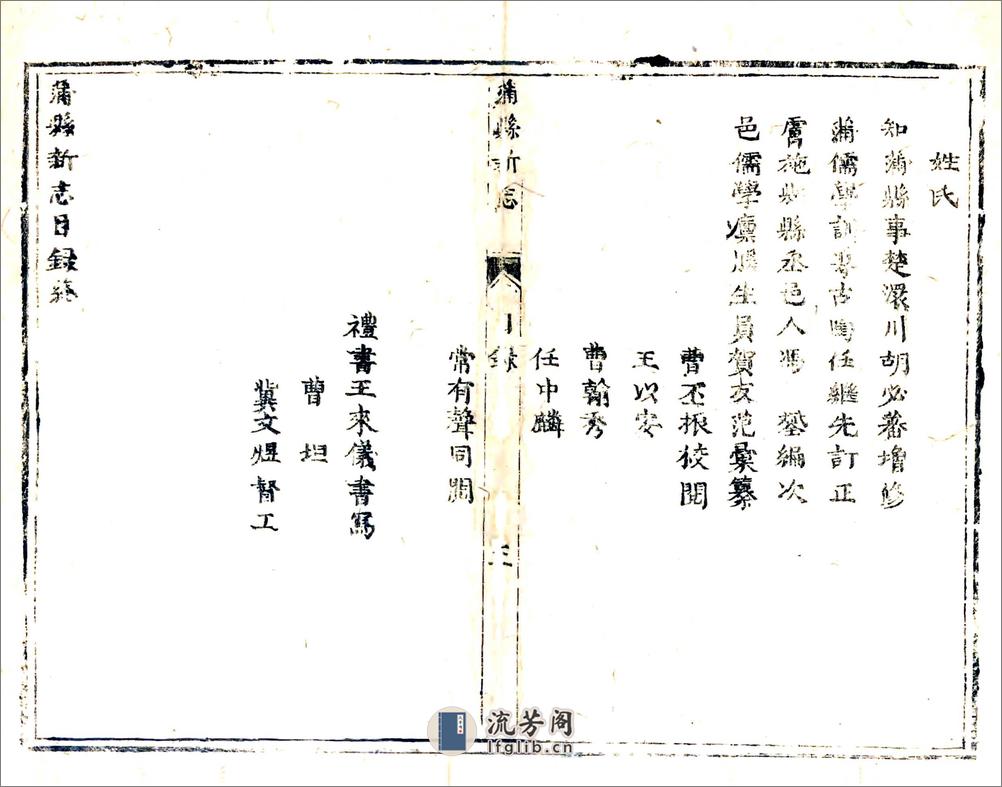 姓氏
知蒲縣事楚澴川胡必蕃增修
蒲儒學訓導古陶任繼先訂正
膚施縣縣丞邑人馮 鏊編次
邑儒學廩膳生員賀友范彙纂
曹丕振校閱
王以安
曹翰秀
任中麟
常有聲同閱
蒲縣新志
目錄
三
禮書王來儀書寫
曹 坦
冀文煜督工
蒲縣新志目錄終
流芳阁
lfglib.cn